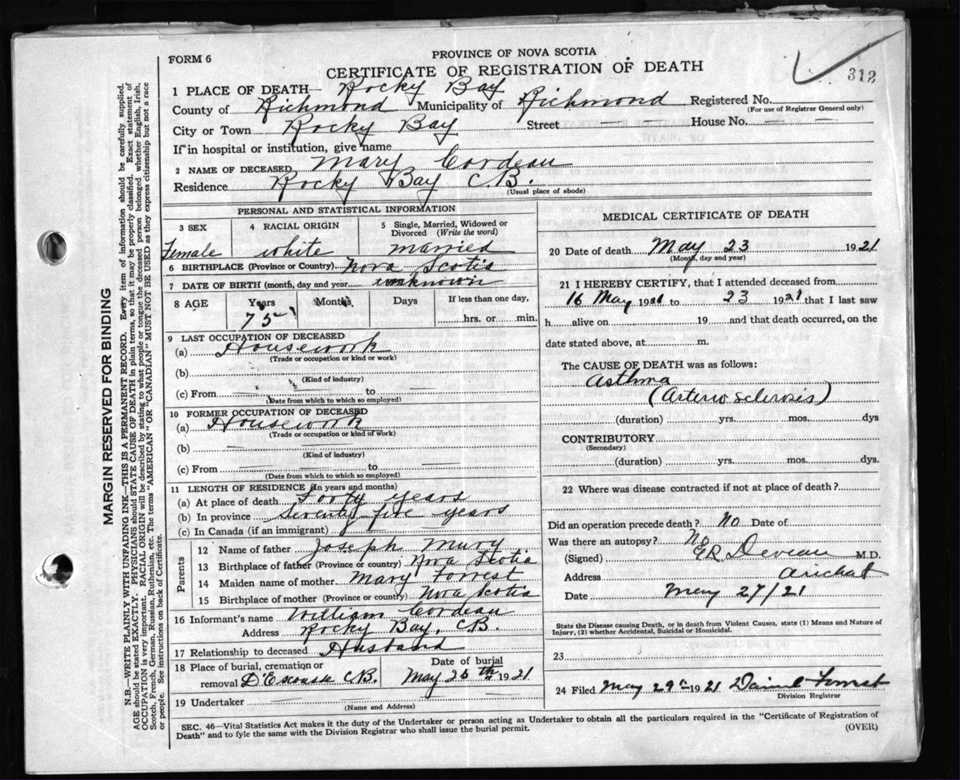 FORM 6
PROVINCE OF NOVA SCOTIA
CERTIFICATE OF REGISTRATION OF DEATH
312
1 PLACE OF DEATH— Rocky Bay
County of Richmond Municipality of Richmond Registered No.
(For use of Registrar General only)
City or Town Rocky Bay Street — House No. — —
If in hospital or institution, give name
2 NAME OF DECEASED Mary Cordeau
Residence Rocky Bay C.B.
(Usual place of abode)
PERSONAL AND STATISTICAL INFORMATION
3 SEX 4 RACIAL ORIGIN 5 Single, Married, Widowed or Divorced (Write the word)
Female white married
6 BIRTHPLACE (Province or Country) Nova Scotia
7 DATE OF BIRTH (month, day and year) unknown
8 AGE Years Months Days If less than one day,
75 hrs. or min.
9 LAST OCCUPATION OF DECEASED
(a) Housework
(Trade or occupation or kind or work)
(b)
(Kind of industry)
(c) From to
(Date from which to which so employed)
10 FORMER OCCUPATION OF DECEASED
(a) Housework
(Trade or occupation or kind of work)
(b)
(Kind of industry)
(c) From to
(Date from which to which so employed)
11 LENGTH OF RESIDENCE (in years and months)
(a) At place of death Forty years
(b) In province Seventy five years
(c) In Canada (if an immigrant)
Parents
12 Name of father Joseph Mury
13 Birthplace of father (Province or country) Nova Scotia
14 Maiden name of mother Mary Forrest
15 Birthplace of mother (Province or country) Nova Scotia
16 Informant's name William Cordeau
Address Rocky Bay, C.B.
17 Relationship to deceased Husband
18 Place of burial, cremation or Date of burial
removal D'Escouse C.B. May 25th 1921
19 Undertaker
(Name and Address)
MEDICAL CERTIFICATE OF DEATH
20 Date of death May 23 1921
(Month, day and year)
21 I HEREBY CERTIFY, that I attended deceased from
16 May 1921 to 23 1921 that I last saw
h alive on 19 and that death occurred, on
date stated above, at m.
The CAUSE OF DEATH was as follows:
Asthma
(Arterio Sclerosis)
(duration) yrs. mos. dys
CONTRIBUTORY
(Secondary)
(duration) yrs. mos. dys.
22 Where was disease contracted if not at place of death?
Did an operation precede death? No Date of
Was there an autopsy? No
(Signed) Deveau M.D.
Address Arichat
Date May 27/21
State the Disease causing Death, or in death from Violent Causes, state (1) Means and Nature of
Injury, (2) whether Accidental, Suicidal or Homicidal.
23
24 Filed May 29 1921 Forrest
Division Registrar
SEC. 46—Vital Statistics Act makes it the duty of the Undertaker or person acting as Undertaker to obtain all the particulars required in the "Certificate of Registration of
Death" and to fyle the same with the Division Registrar who shall issue the burial permit. (OVER)
MARGIN RESERVED FOR BINDING
N.B.—WRITE PLAINLY WITH UNFADING INK—THIS IS A PERMANENT RECORD. Every item of information should be carefully supplied.
AGE should be stated EXACTLY. PHYSICIANS should STATE CAUSE OF DEATH in plain terms, so that it may be properly classified. Exact statement of
OCCUPATION is very important. RACIAL ORIGIN will be described by stating to what people or tongue the deceased person belonged whether English, Irish,
Scotch, French, German, Russian, Ruthenian, etc. The terms "AMERICAN" OR "CANADIAN" MUST NOT BE USED as they express citizenship but not a race
or people. See instructions on back of Certificate.